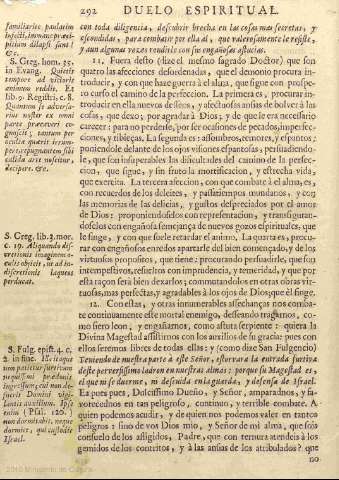 292 DUELO ESPIRITUAL.
familiarites paulatim
inspicit, immunes præci-
pitium dilapsi sunt!
&c.
S. Greg. hom. 35.
in Evang. Quietis
tempore ad victoriæ
animum reddit. Et
lib. 9. Registri, c. 8.
Quamvis is adversa-
rius noster ex omni
parte prævaveri co-
gnoscit; tantum per
occulta quærit irrum-
pere, expugnantem subi
callida arte nititur,
decipere. &c.
S. Greg. lib. 2. mor.
c. 19. Aliquando dis-
cretionis imaginem o-
culis objicit, ne ad in-
discretionis laqueos
perducat.
S. Fulg. epist. 4. c.
2. in fine.
(Psal. 120.)
non dormitabit, neque
dormiet, qui custodit
Israel.
con toda diligencia, descubrir brecha en las cosas mas secretas, y
escondidas, para combatir por ella al, que valerosamente le resiste,
y aun algunas vezes rendirle con sus engañosas astucias.
11. Fuera desto (dize el mesmo sagrado Doctor) que son
quatro las afecciones desordenadas, que el demonio procura in-
troducir, y con que haze guerra à el alma, que sigue con prospe-
ro curso el camino de la perfeccion. La primera es, procurar in-
troducir en ella nuevos deseos, y afectuosas ansias de bolver à las
cosas, que dexo, por agradar à Dios; y de que le era necessario
carecer: para no perderse, por ser ocasiones de pecados, imperfec-
ciones, y tibieças. La segunda es: assombros, temores, y espantos:
poniendole delante de los ojos visiones espantosas, persuadiendo-
le, que son insuperables las dificultades del camino de la perfec-
cion, que sigue, y sin fruto la mortificacion, y estrecha vida,
que exercita. La tercera afeccion, con que combate à el alma, es;
con recuerdos de los deleites, y passatiempos mundanos, y con
las memorias de las delicias, y gustos despreciados por el amor
de Dios: proponiendoselos con representacion, y transiguran-
doselos con engañosa semejança de nuevos gozos espirituales, que
le finge, y con que suele retardar el animo. La quarta es, procu-
rar con engañosos enredos apartarle del bien començado, y de los
virtuosos propositos, que tiene: procurando persuadirle, que son
intempestivos, resueltos con imprudencia, y temeridad, y que por
esta raçon será bien dexarlos; commutandolos en otras obras vir-
tuosas, mas perfectas, y agradables à los ojos de Dios; que él finge.
12. Con estas, y otras innumerables assechanças nos comba-
te continuamente este mortal enemigo, deseando tragarnos, co-
mo fiero leon, y engañarnos, como astuta serpiente: quiera la
Divina Magestad assistirnos con los auxilios de su gracia: pues con
ellos seremos libres de todas ellas: y (como dize San Fulgencio)
Teniendo de nuestra parte à este Señor, estorvara la entrada furtiva
deste perversissimo ladron en nuestras almas: porque su Magestad es,
el que ni se duerme, ni descuida en la guarda, y defensa de Israel.
Ea pues pues, Dulcissimo Dueño, y Señor, ampararnos, y fa-
vorecednos en tan peligroso, continuo, y terrible combate. A
quien podemos acudir, y de quien nos podemos valer en tantos
peligros: sino de vos Dios mio, y Señor de mi alma, que sois
consuelo de los afligidos, Padre, que con ternura atendeis à los
gemidos de los contritos, y à las ansas de los atribulados? que
no
2010 Ministerio de Cultura